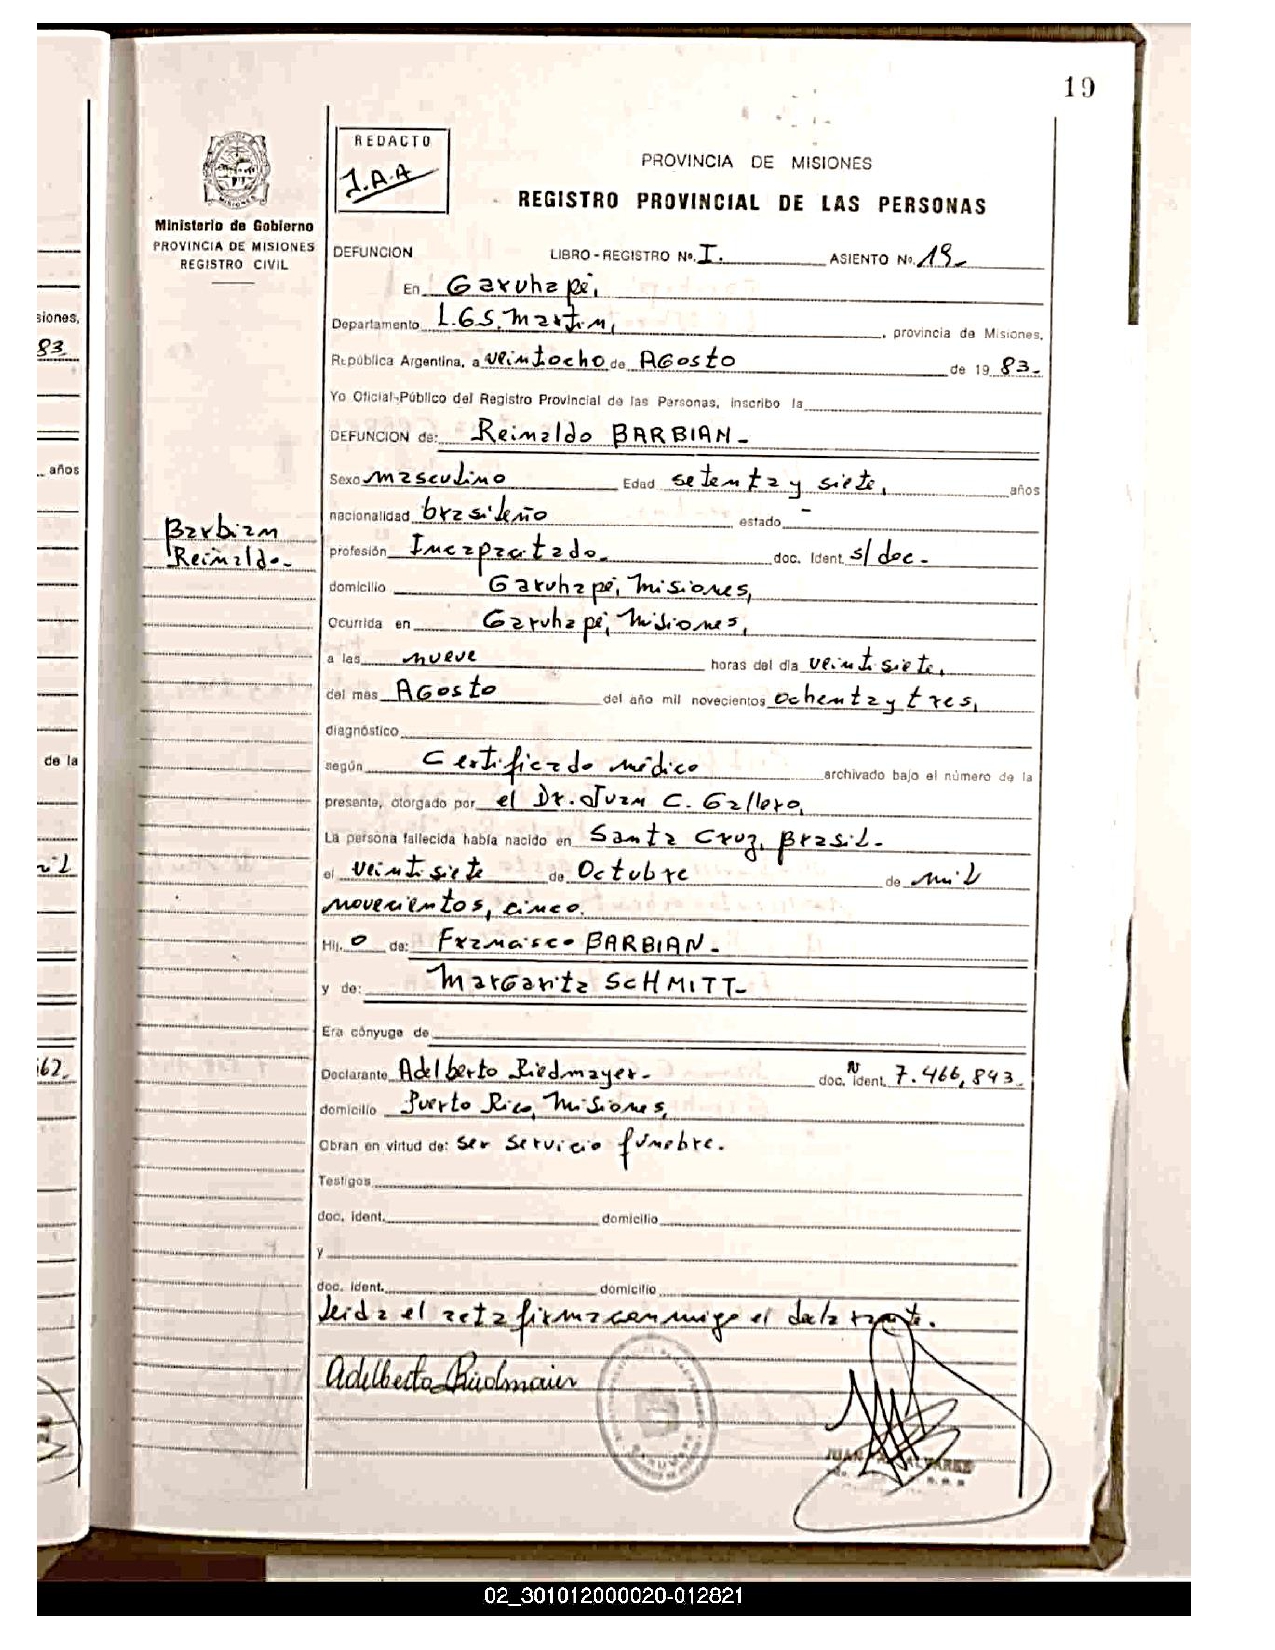 19
REDACTO
J.A.A
PROVINCIA DE MISIONES
REGISTRO PROVINCIAL DE LAS PERSONAS
Ministerio de Gobierno
PROVINCIA DE MISIONES
REGISTRO CIVIL
DEFUNCION LIBRO-REGISTRO Nº. I. ASIENTO Nº. 19-
En Garuhapé,
Departamento L.G.S. Martin, provincia de Misiones,
República Argentina, a veintocho de Agosto de 19 83.-
Yo Oficial Público del Registro Provincial de las Personas, inscribo la
DEFUNCION de: Reinaldo BARBIAN-
Sexo masculino Edad setenta y siete, años
nacionalidad brasileño estado -
Barbian
Reinaldo.-
profesión Incapacitado. doc. Ident. s/doc.-
domicilio Garuhapé, Misiones,
Ocurrida en Garuhapé, Misiones,
a las nueve horas del día veintisiete,
del mes Agosto del año mil novecientos ochenta y tres,
diagnóstico
según Certificado médico archivado bajo el número de la
presente, otorgado por el Dr. Juan C. Gallero,
La persona fallecida había nacido en Santa Cruz, Brasil.-
el veintisiete de Octubre de mil
novecientos, cinco.
Hij o de: Francisco BARBIAN.-
y de: Margarita SCHMITT-
Era cónyuge de
Declarante Adelberto Riedmayer.- doc. Ident. Nº 7.466,843-
domicilio Puerto Rico, Misiones,
Obran en virtud de: ser servicio fúnebre.
Testigos
doc. Ident. domicilio
y
doc. Ident. domicilio
Leida el acta firma conmigo el declarante.
Adelberto Riedmaier
siones,
83
años
de la
mil
662
02_301012000020-012821